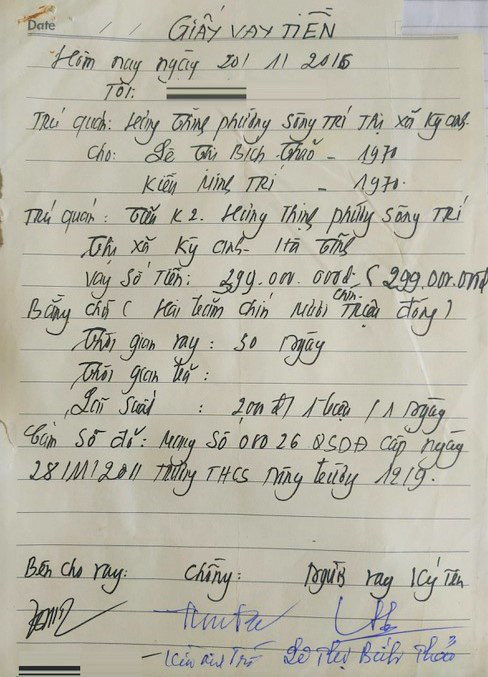 Date
GIẤY VAY TIỀN
Hôm nay ngày 20/11/2016
Tôi:
Trú quán: Hưng Thịnh phường Sông Trí Thị xã Kỳ anh.
Cho: Lê Thị Bích Thảo - 1970
Kiều Minh TRÍ - 1970.
Trú quán: Tân K2. Hưng Thịnh phường Sông TRÍ
Thị xã Kỳ anh - Hà Tĩnh
Vay Số Tiền: 299.000.000đ (299.000.000đ
Bằng chữ (Hai trăm chín mươi chín Triệu đồng)
Thời gian vay: 30 ngày
Thời gian trả:
Lãi Suất : 200đ/1 triệu/1 ngày
Số đỏ: mang Số 26 QSDĐ cấp ngày
28/11/2011 Trường THCS
Bên cho vay: Chồng: Người vay Ký Tên
Lê Thị Bích Thảo